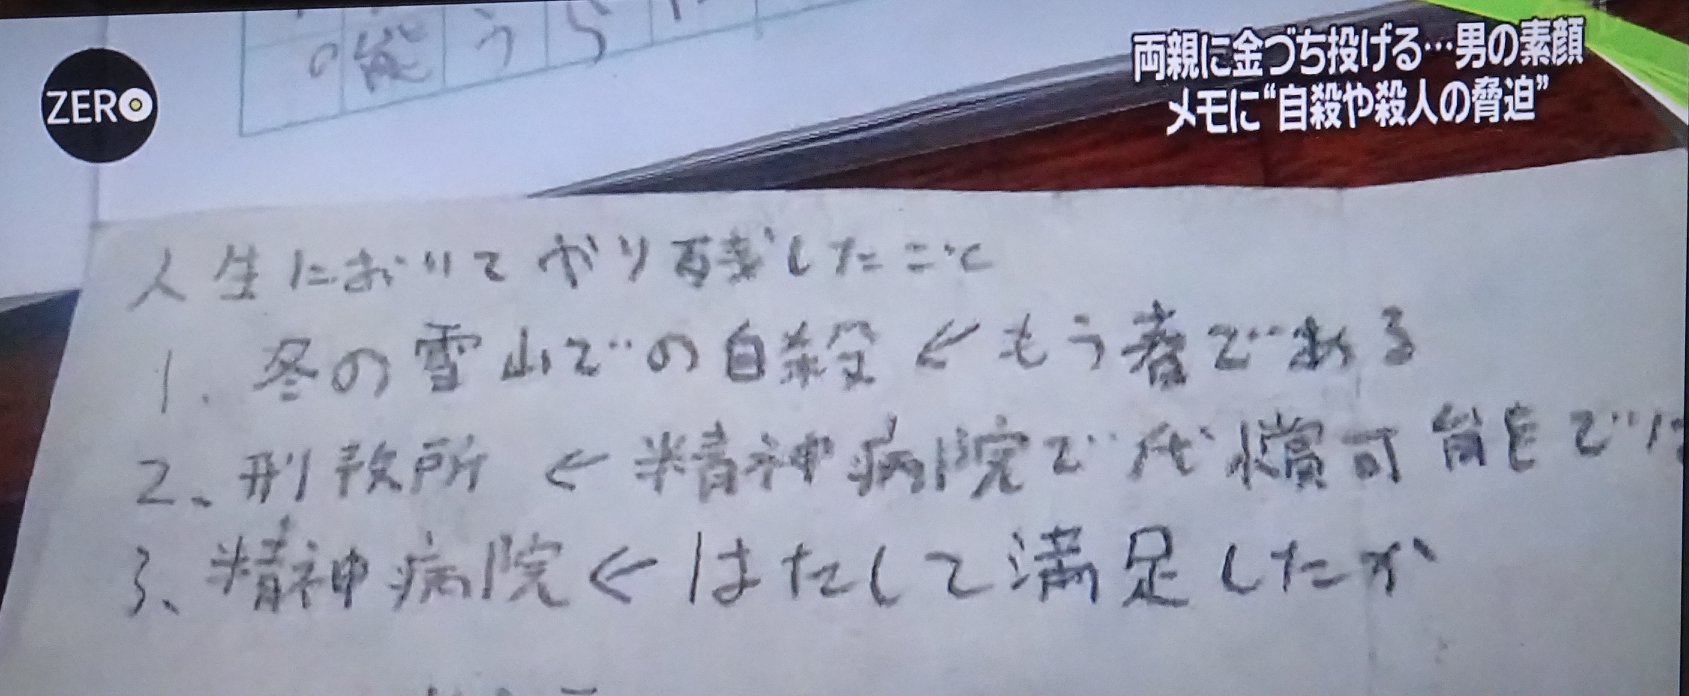 ZERO
両親に金づち投げる…男の素顔
メモに“自殺や殺人の脅迫”
能うら
人生においてやり残したこと
1. 冬の雪山での自殺 ← もう者である
2、刑務所 ← 精神病院で代償可能では
3、精神病院 ← はたして満足したか